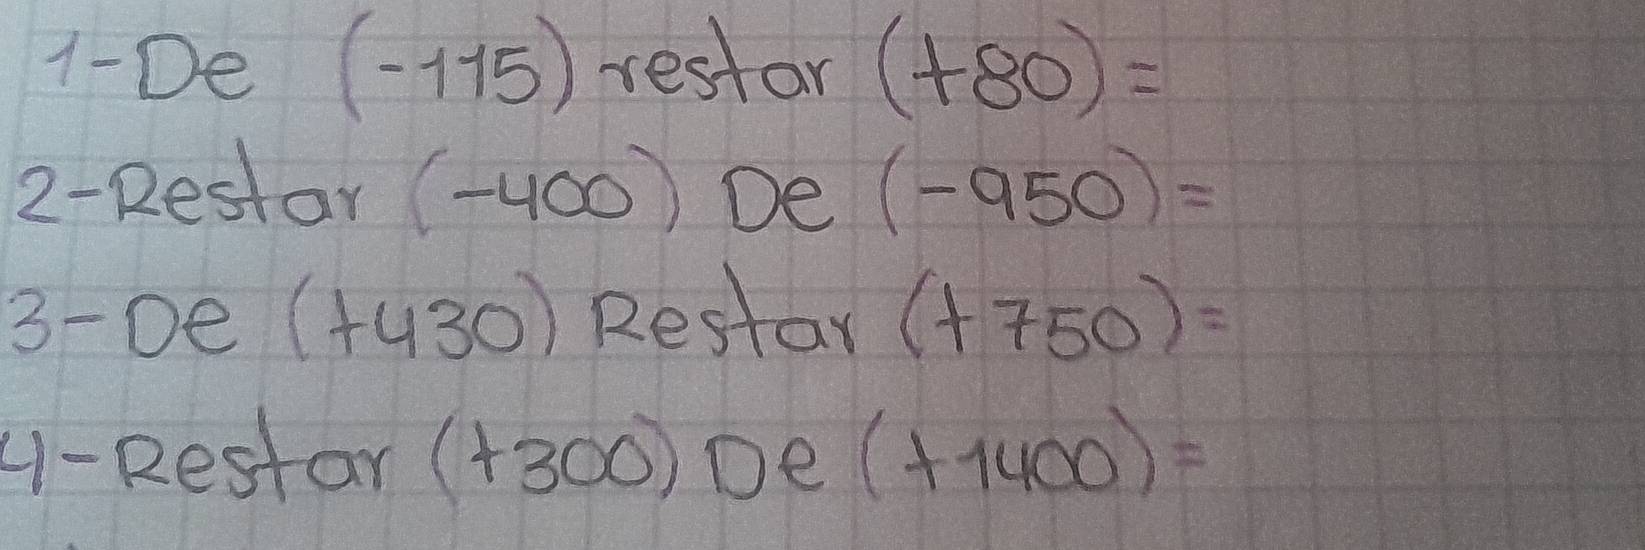 1-De (-115) restar (+80)=
2-Restar (-400) De (-950)=
3-De (+430) Restar (+750)=
4-Restar (+300) De (+1400)=